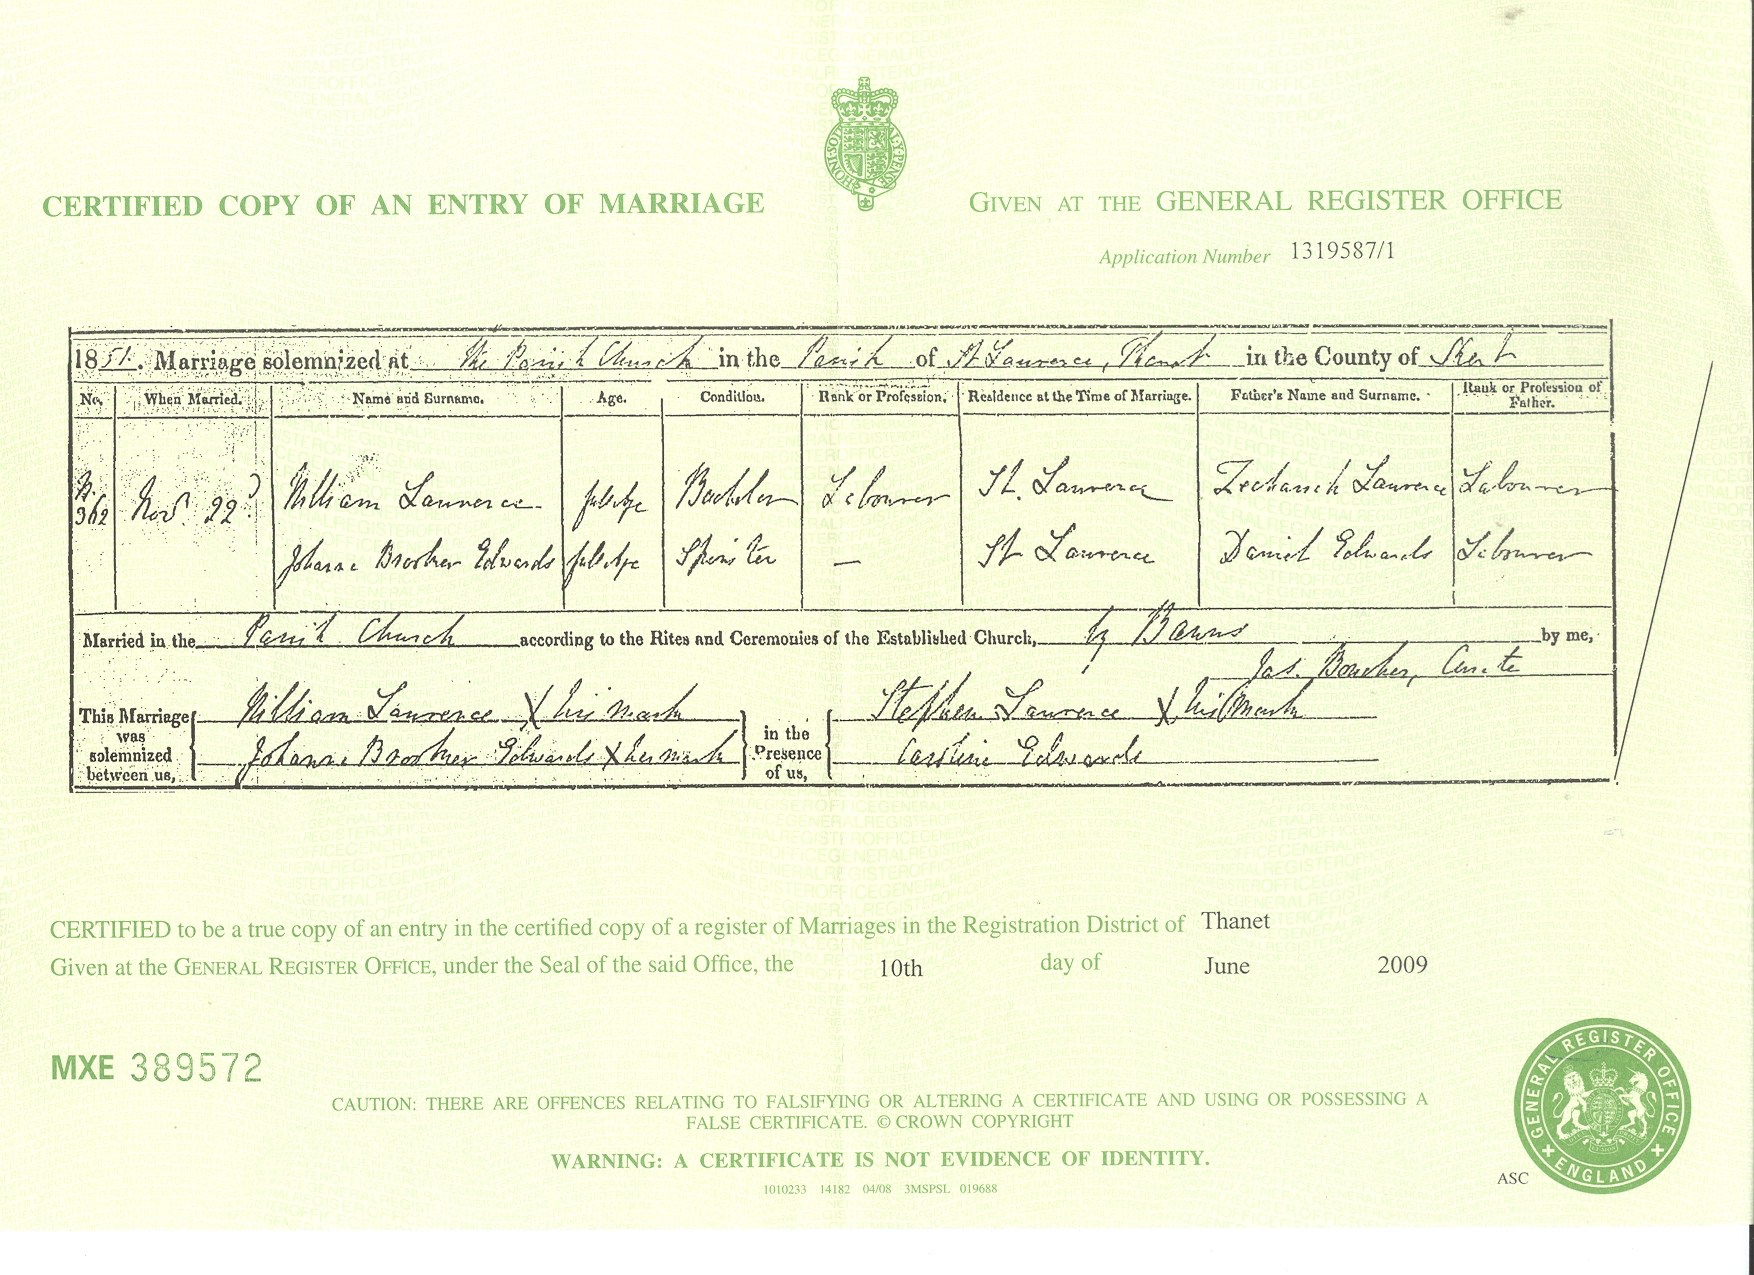 HONI·SOIT AL·Y·PENSE
CERTIFIED COPY OF AN ENTRY OF MARRIAGE
GIVEN AT THE GENERAL REGISTER OFFICE
Application Number 1319587/1
1851. Marriage solemnized at the Parish Church in the Parish of St Laurence, Thanet in the County of Kent
No. When Married. Name and Surname. Age. Condition. Rank or Profession. Residence at the Time of Marriage. Father's Name and Surname. Rank or Profession of Father.
N. 362 Nov. 22d William Laurence full age Bachelor Labourer St. Laurence Zechariah Laurence Labourer
Johanna Brooker Edwards full age Spinster — St Laurence Daniel Edwards Labourer
Married in the Parish Church according to the Rites and Ceremonies of the Established Church, by Banns by me,
Jas. Boucher, Curate
This Marriage was solemnized between us, William Laurence X his mark in the Presence of us, Stephen Laurence X his Mark
Johanna Brooker Edwards X her mark Caroline Edwards
CERTIFIED to be a true copy of an entry in the certified copy of a register of Marriages in the Registration District of Thanet
Given at the GENERAL REGISTER OFFICE, under the Seal of the said Office, the 10th day of June 2009
MXE 389572
CAUTION: THERE ARE OFFENCES RELATING TO FALSIFYING OR ALTERING A CERTIFICATE AND USING OR POSSESSING A
FALSE CERTIFICATE. © CROWN COPYRIGHT
WARNING: A CERTIFICATE IS NOT EVIDENCE OF IDENTITY.
1010233 14182 04/08 3MSPSL 019688
ASC
GENERAL REGISTER OFFICE
ENGLAND